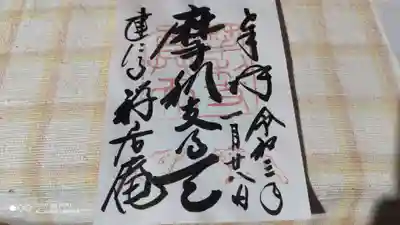 奉拝 令和三年
一月廿八日
摩利支尊天
建仁寺 禅居庵